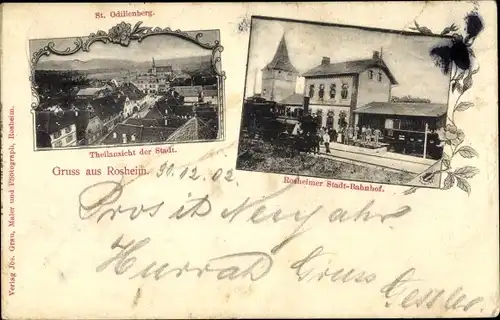 St. Odilienberg.
Theilansicht der Stadt.
Gruss aus Rosheim.
30.12.02
Rosheimer Stadt-Bahnhof.
Prosit Neujahr
Hurrah Gruss
Verlag Jos. Grau, Maler und Photograph, Rosheim.